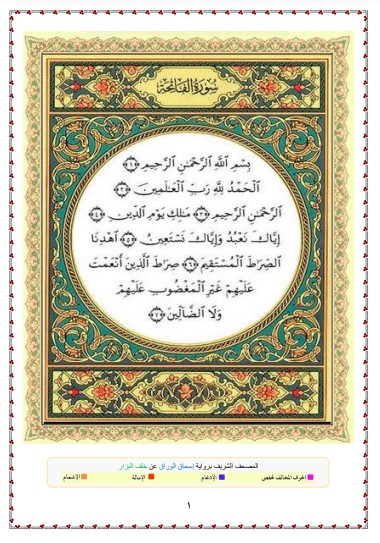 سُورَةُ الفَاتِحَةِ
بِسْمِ اللَّهِ الرَّحْمَٰنِ الرَّحِيمِ ﴿١﴾
الْحَمْدُ لِلَّهِ رَبِّ الْعَٰلَمِينَ ﴿٢﴾
الرَّحْمَٰنِ الرَّحِيمِ ﴿٣﴾ مَٰلِكِ يَوْمِ الدِّينِ ﴿٤﴾
إِيَّاكَ نَعْبُدُ وَإِيَّاكَ نَسْتَعِينُ ﴿٥﴾ اهْدِنَا
الصِّرَٰطَ الْمُسْتَقِيمَ ﴿٦﴾ صِرَٰطَ الَّذِينَ أَنْعَمْتَ
عَلَيْهِمْ غَيْرِ الْمَغْضُوبِ عَلَيْهِمْ
وَلَا الضَّالِّينَ ﴿٧﴾
المصحف الشريف برواية إسحاق الوراق عن خلف البزار
الحرف المخالف لحفص الإدغام الإمالة الإشمام
١